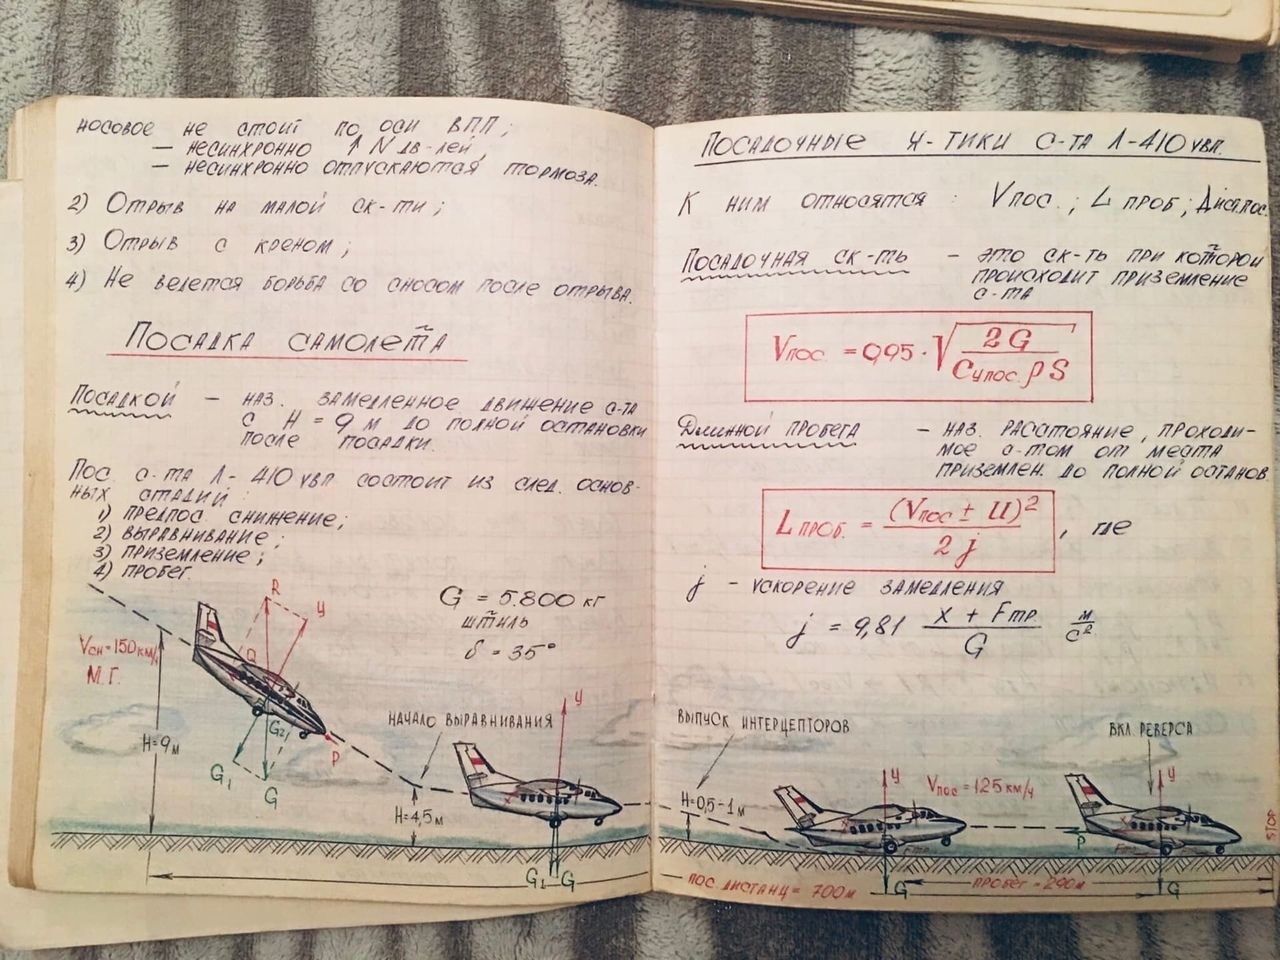 носовое не стоит по оси ВПП;
– несинхронно ↑ N дв-лей,
– несинхронно отпускаются тормоза.
2) Отрыв на малой ск-ти;
3) Отрыв с креном;
4) Не ведется борьба со сносом после отрыва.
Посадка самолета
Посадкой – наз. замедленное движение с-та
с H = 9 м до полной остановки
после посадки.
Пос. с-та Л-410 увп состоит из след. основ-
ных стадий:
1) предпос. снижение;
2) выравнивание;
3) приземление;
4) пробег.
G = 5.800 кг
штиль
δ = 35°
R
У
Vсн = 150 км/ч
М.Г.
Q
H = 9 м
G2
G1
G
P
начало выравнивания
H = 4,5 м
У
X
G1 G
Посадочные ч-тики с-та Л-410 увп.
К ним относятся: Vпос.; L проб; Дист.пос.
Посадочная ск-ть – это ск-ть при которой
происходит приземление
с-та
Vпос. = 0,95 · √ 2G / Cупос. ρ S
Длинной пробега – наз. расстояние, проходи-
мое с-том от места
приземлен. до полной останов
L проб. = (Vпос ± U)² / 2j , где
j – ускорение замедления
j = 9,81 X + Fтр / G м/с²
выпуск интерцепторов
вкл. реверса
H = 0,5-1 м
У
X
Vпос = 125 км/ч
Fтр
У
X
P
Fтр
STOP
пос дистанц = 700 м
G
пробег = 290 м
G